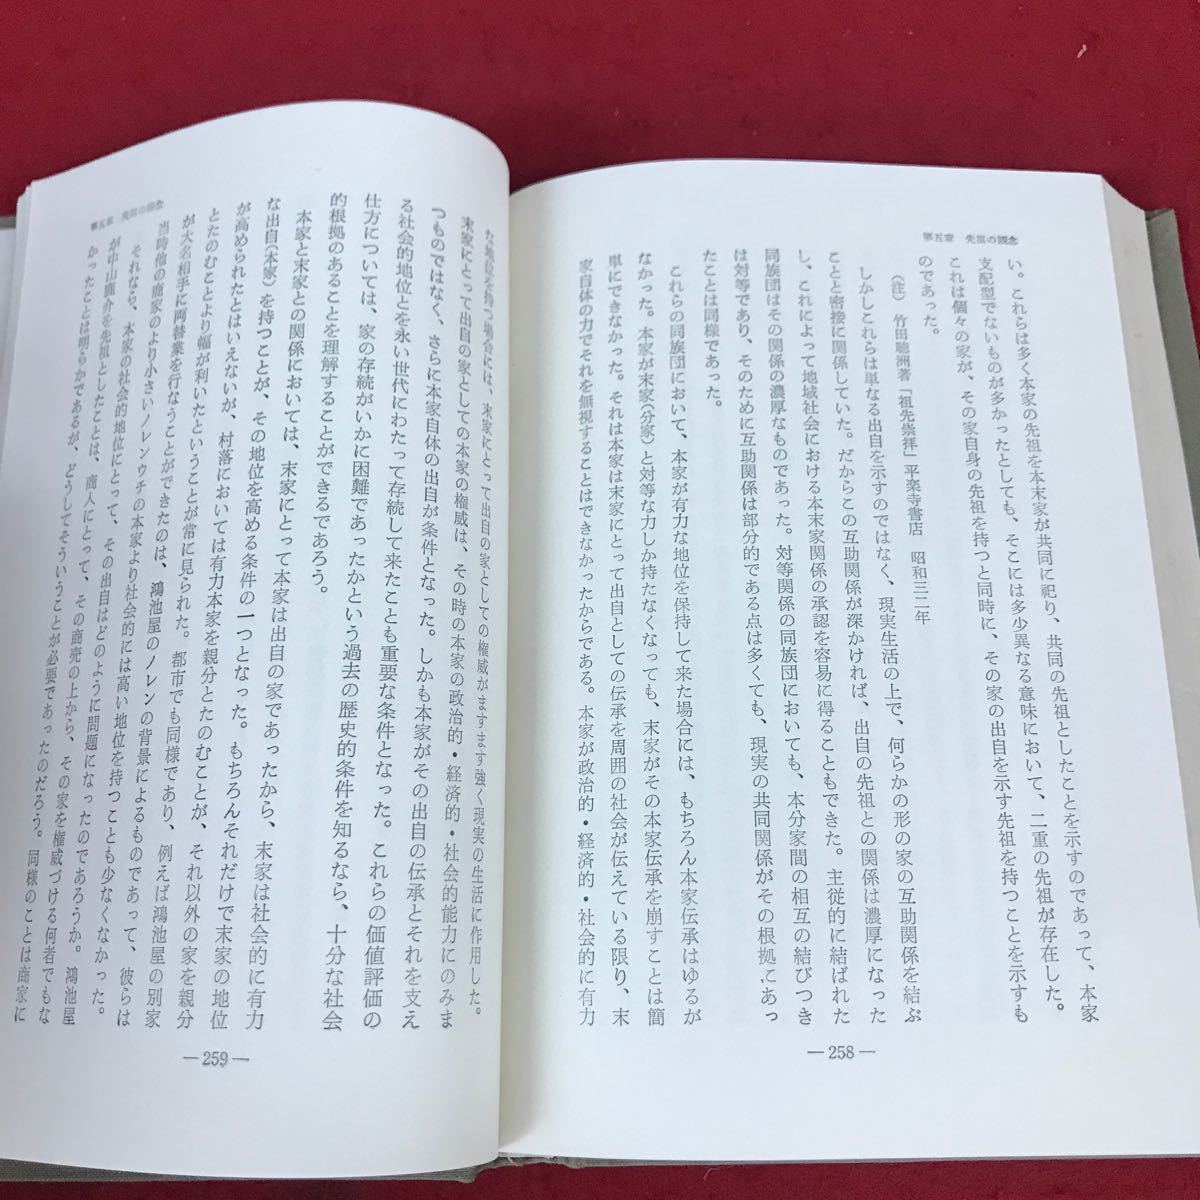 第五章　先祖の観念
い。これらは多く本家の先祖を本末家が共同に祀り、共同の先祖としたことを示すのであって、本家
支配型でないものが多かったとしても、そこには多少異なる意味において、二重の先祖が存在した。
これは個々の家が、その家自身の先祖を持つと同時に、その家の出自を示す先祖を持つことを示すも
のであった。
（注）　竹田聴洲著「祖先崇拝」平楽寺書店　昭和三二年
しかしこれらは単なる出自を示すのではなく、現実生活の上で、何らかの形の家の互助関係を結ぶ
ことと密接に関係していた。だからこの互助関係が深かければ、出自の先祖との関係は濃厚になった
し、これによって地域社会における本末家関係の承認を容易に得ることもできた。主従的に結ばれた
同族団はその関係の濃厚なものであった。対等関係の同族団においても、本分家間の相互の結びつき
は対等であり、そのために互助関係は部分的である点は多くても、現実の共同関係がその根拠にあっ
たことは同様であった。
これらの同族団において、本家が有力な地位を保持して来た場合には、もちろん本家伝承はゆるが
なかった。本家が末家（分家）と対等な力しか持たなくなっても、末家がその本家伝承を崩すことは簡
単にできなかった。それは本家は末家にとって出自としての伝承を周囲の社会が伝えている限り、末
家自体の力でそれを無視することはできなかったからである。本家が政治的・経済的・社会的に有力
—258—
第五章　先祖の観念
な地位を持つ場合には、末家にとって出自の家としての権威がますます強く現実の生活に作用した。
末家にとって出自の家としての本家の権威は、その時の本家の政治的・経済的・社会的能力にのみま
つものではなく、さらに本家自体の出自が条件となった。しかも本家がその出自の伝承とそれを支え
る社会的地位とを永い世代にわたって存続して来たことも重要な条件となった。これらの価値評価の
仕方については、家の存続がいかに困難であったかという過去の歴史的条件を知るなら、十分な社会
的根拠のあることを理解することができるであろう。
本家と末家との関係においては、末家にとって本家は出自の家であったから、末家は社会的に有力
な出自（本家）を持つことが、その地位を高める条件の一つとなった。もちろんそれだけで末家の地位
が高められたとはいえないが、村落においては有力本家を親分とたのむことが、それ以外の家を親分
とたのむことより幅が利いたということが常に見られた。都市でも同様であり、例えば鴻池屋の別家
が大名相手に両替業を行なうことができたのは、鴻池屋のノレンの背景によるものであって、彼らは
当時他の商家のより小さいノレンウチの本家より社会的には高い地位を持つことも少なくなかった。
それなら、本家の社会的地位にとって、その出自はどのように問題になったのであろうか。鴻池屋
が中山鹿介を先祖としたことは、商人にとって、その商売の上から、その家を権威づける何者でもな
かったことは明らかであるが、どうしてそういうことが必要であったのだろう。同様のことは商家に
—259—